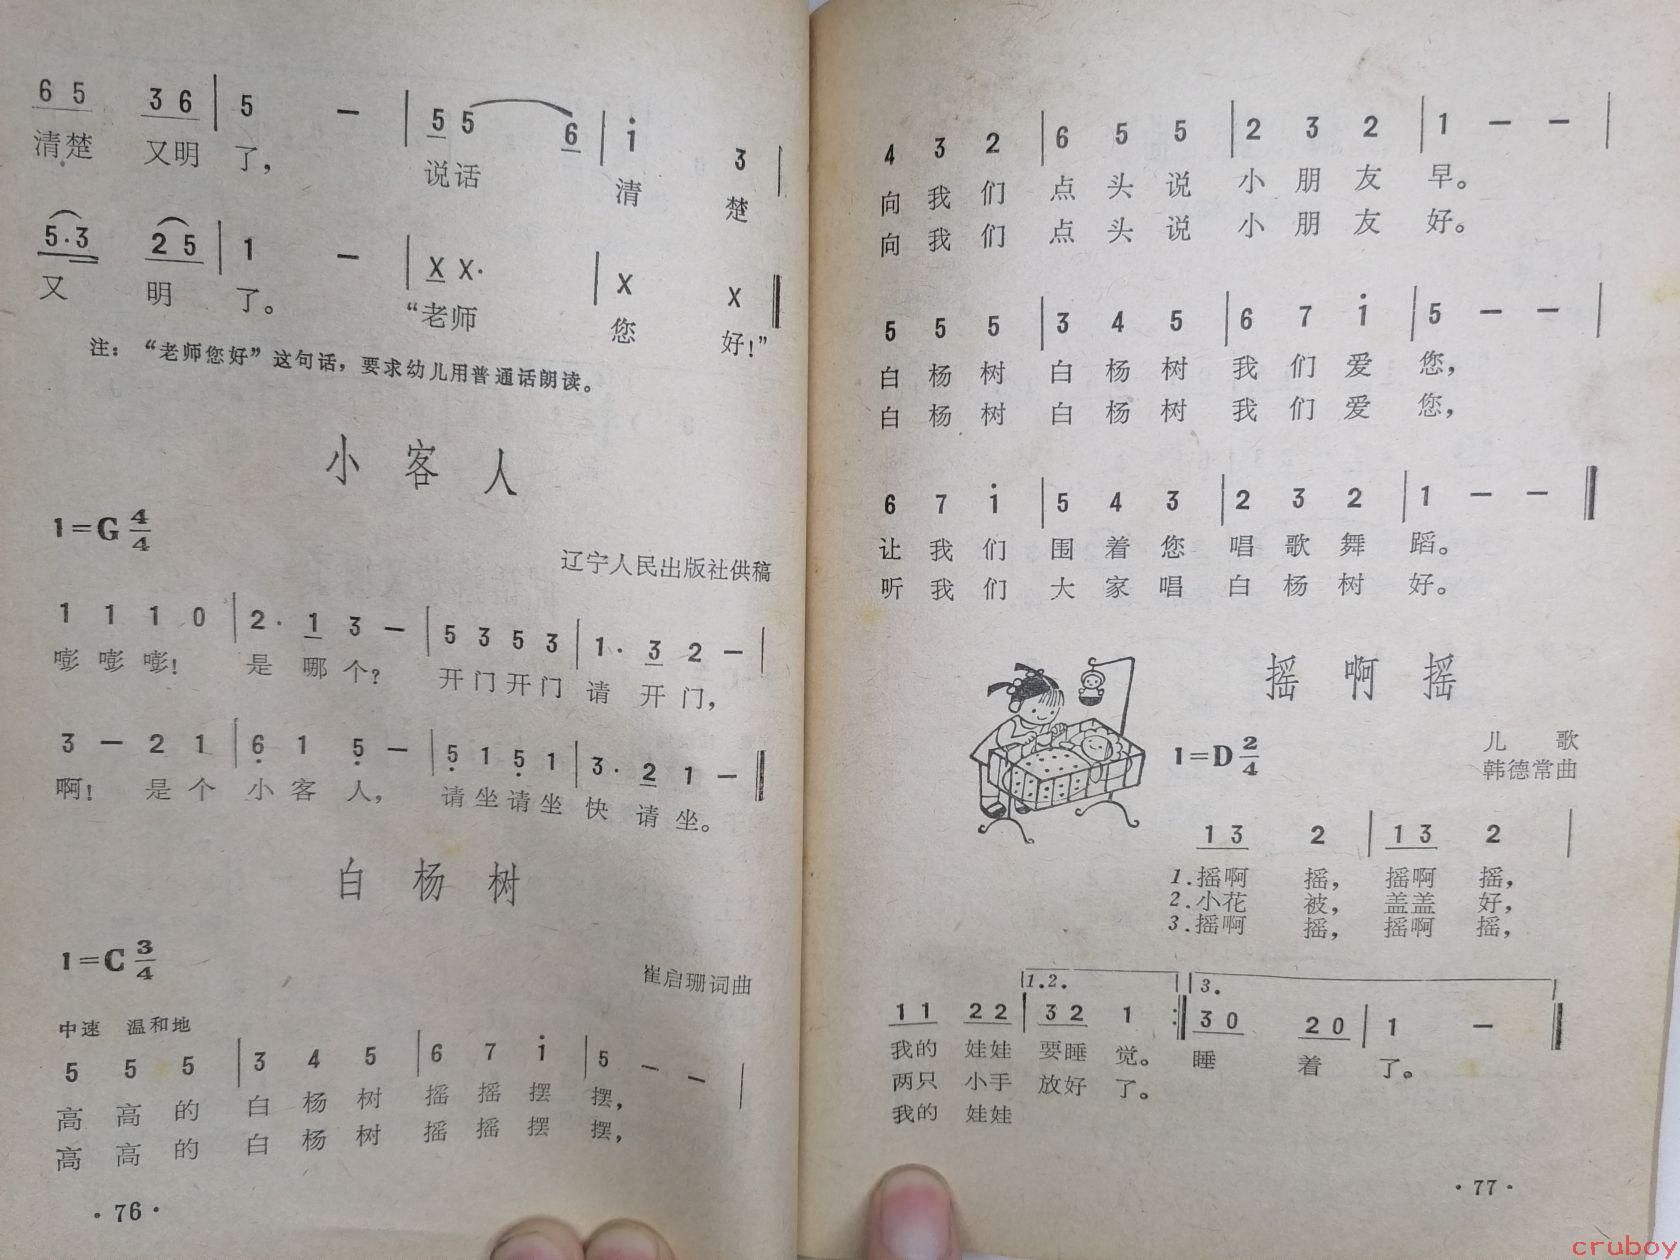 6 5 3 6 | 5 — | 5 5 6 | 1 3 |
清楚 又明 了， 说话 清 楚
5·3 2 5 | 1 — | X X· | X X
又 明 了。 “老师 您 好！”
注：“老师您好”这句话，要求幼儿用普通话朗读。
小客人
1=G 4/4
辽宁人民出版社供稿
1 1 1 0 | 2· 1 3 — | 5 3 5 3 | 1· 3 2 — |
嘭 嘭 嘭！ 是 哪 个？ 开门开门 请 开 门，
3 — 2 1 | 6 1 5 — | 5 1 5 1 | 3· 2 1 — |
啊！ 是 个 小 客 人， 请坐请坐 快 请 坐。
白杨树
1=C 3/4
崔启珊词曲
中速 温和地
5 5 5 | 3 4 5 | 6 7 1 | 5 — — |
高 高 的 白 杨 树 摇 摇 摆 摆，
高 高 的 白 杨 树 摇 摇 摆 摆，
·76·
4 3 2 | 6 5 5 | 2 3 2 | 1 — — |
向 我 们 点 头 说 小 朋 友 早。
向 我 们 点 头 说 小 朋 友 好。
5 5 5 | 3 4 5 | 6 7 1 | 5 — — |
白 杨 树 白 杨 树 我 们 爱 您，
白 杨 树 白 杨 树 我 们 爱 您，
6 7 1 | 5 4 3 | 2 3 2 | 1 — — |
让 我 们 围 着 您 唱 歌 舞 蹈。
听 我 们 大 家 唱 白 杨 树 好。
摇啊摇
1=D 2/4
儿 歌
韩德常曲
1 3 2 | 1 3 2 |
1.摇啊 摇， 摇啊 摇，
2.小花 被， 盖盖 好，
3.摇啊 摇， 摇啊 摇，
1.2. 3.
1 1 2 2 | 3 2 1 :| 3 0 2 0 | 1 — |
我的 娃娃 要睡 觉。 睡 着 了。
两只 小手 放好 了。
我的 娃娃
·77·
cruboy